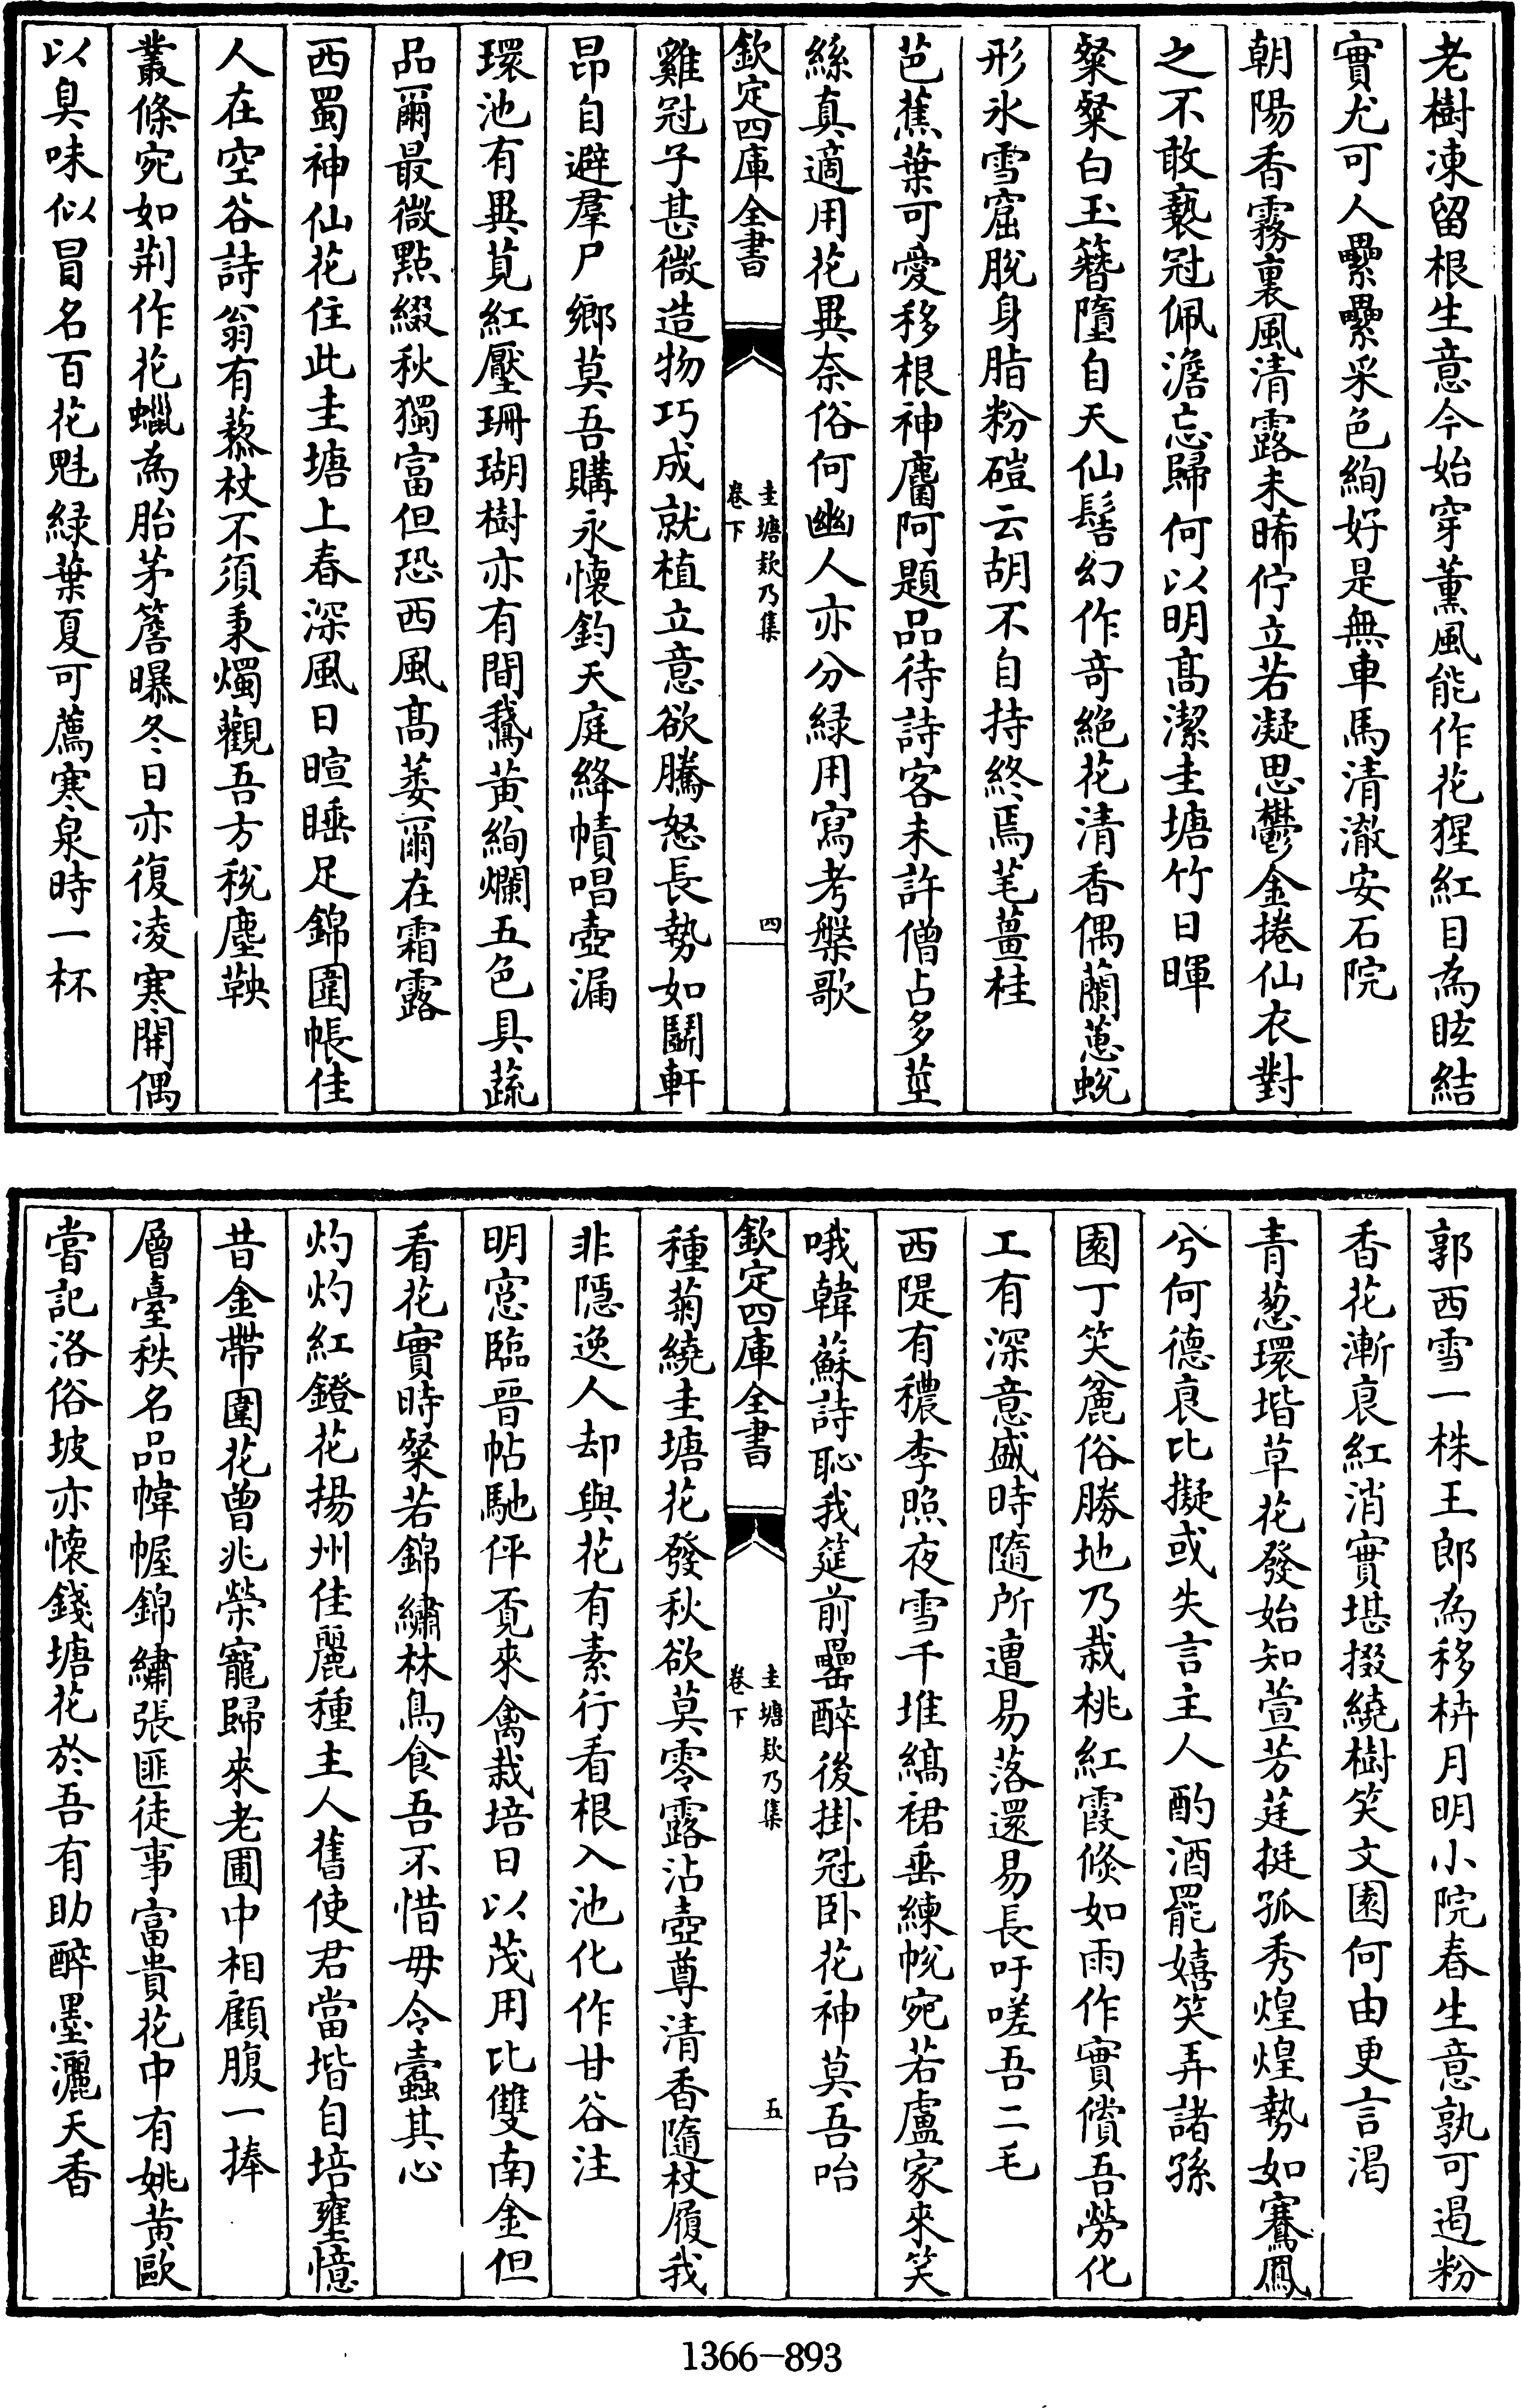 老樹凍留根生意今始穿薰風能作花猩紅目為眩結
實尤可人纍纍采色絢好是無車馬清澈安石院
朝陽香霧裏風清露未晞佇立若凝思鬱金捲仙衣對
之不敢褻冠佩澹忘歸何以明高潔圭塘竹日暉
粲粲白玉簪墮自天仙髻幻作奇絕花清香偶蘭蕙蛻
形氷雪窟脫身脂粉磑云胡不自持終焉芼薑桂
芭蕉葉可愛移根神麕阿題品待詩客未許僧占多莖
絲真適用花異奈俗何幽人亦分緑用寫考槃歌
欽定四庫全書
圭塘欵乃集
卷下
四
雞冠子甚微造物巧成就植立意欲騰怒長勢如鬭軒
昂自避羣尸鄉莫吾購永懷鈞天庭絳幘唱壺漏
環池有異莧紅壓珊瑚樹亦有間鵞黃絢爛五色具蔬
品爾最微㸃綴秋獨富但恐西風高萎爾在霜露
西蜀神仙花住此圭塘上春深風日暄睡足錦圍帳佳
人在空谷詩翁有藜杖不須秉燭觀吾方稅塵鞅
叢條宛如荆作花蠟為胎茅簷曝冬日亦復凌寒開偶
以臭味似冒名百花魁緑葉夏可薦寒泉時一杯
郭西雪一株王郎為移栟月明小院春生意孰可遏粉
香花漸衰紅消實堪掇繞樹笑文園何由更言渴
青葱環堦草花發始知萱芳莛挺孤秀煌煌勢如騫鳳
兮何德衰比擬或失言主人酌酒罷嬉笑弄諸孫
園丁笑麄俗勝地乃栽桃紅霞倐如雨作實償吾勞化
工有深意盛時隨所遭易落還易長吁嗟吾二毛
西隄有穠李照夜雪千堆縞裙垂練帨宛若盧家來笑
哦韓蘇詩恥我筵前罍醉後掛冠卧花神莫吾咍
欽定四庫全書
圭塘欵乃集
卷下
五
種菊繞圭塘花發秋欲莫零露沾壺尊清香隨杖履我
非隠逸人却與花有素行看根入池化作甘谷注
明窓臨晋帖馳伻覔來禽栽培日以茂用比雙南金但
看花實時粲若錦繡林鳥食吾不惜毋令蠧其心
灼灼紅鐙花揚州佳麗種主人舊使君當堦自培壅憶
昔金帶圍花曾兆榮寵歸來老圃中相顧腹一捧
層臺秩名品幃幄錦繡張匪徒事富貴花中有姚黃歐
嘗記洛俗坡亦懷錢塘花於吾有助醉墨灑天香
1366-893